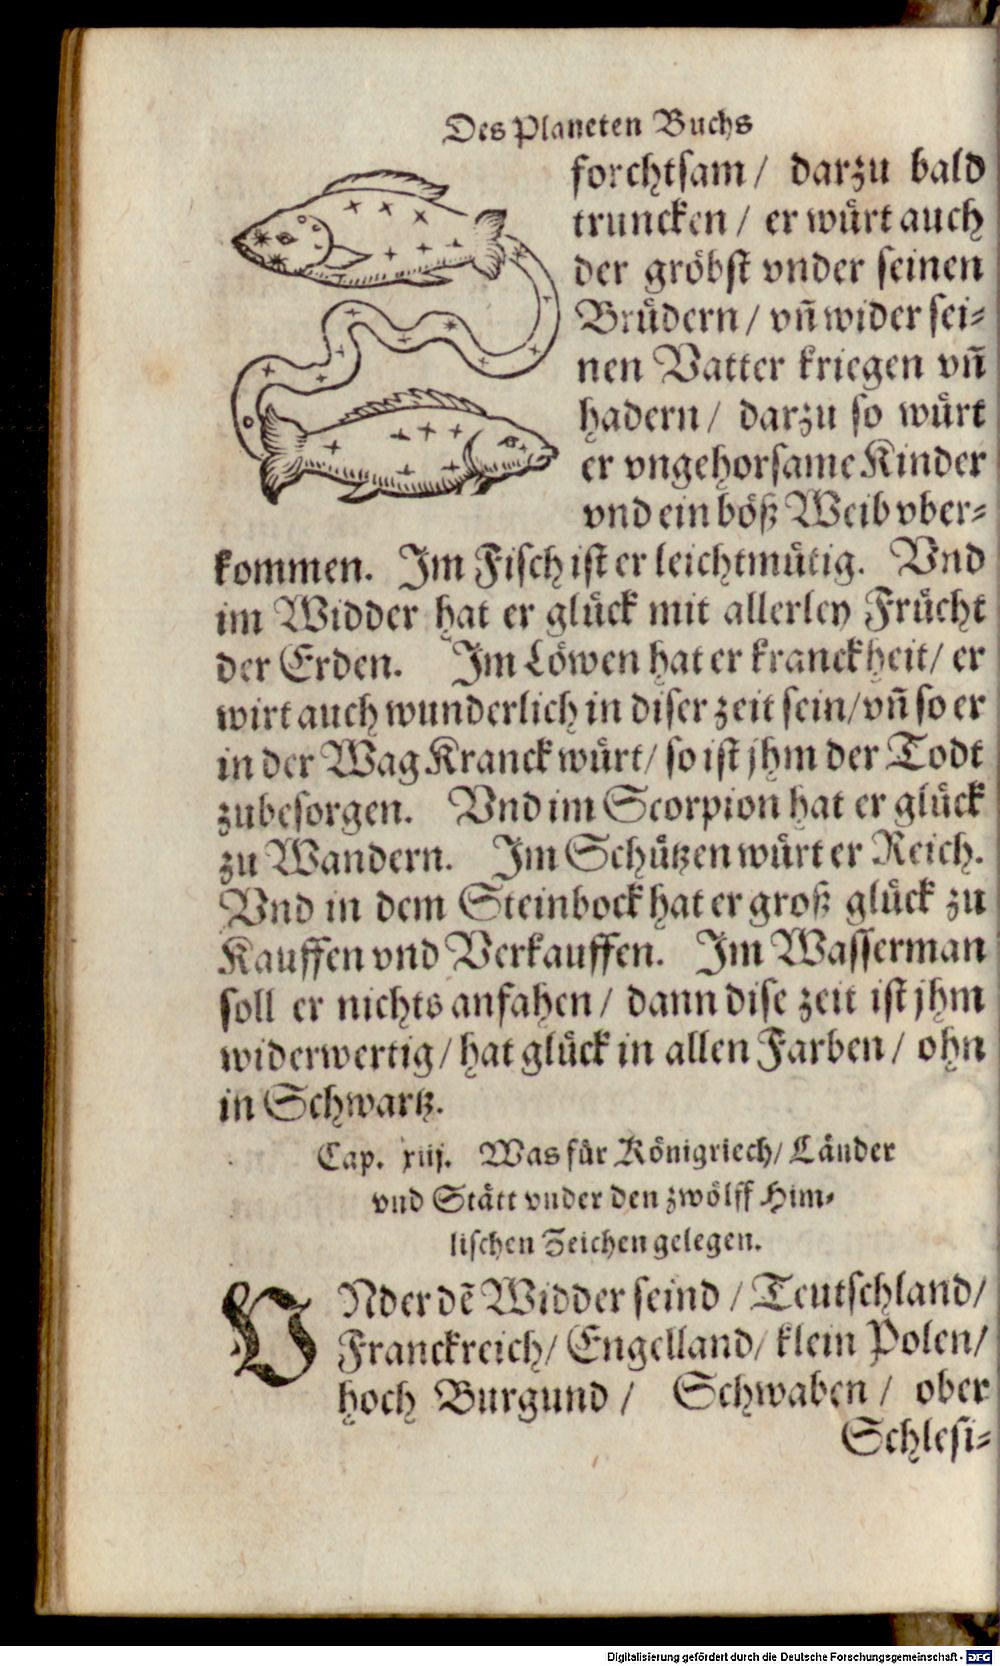 Des Planeten Buchs
forchtsam / darzu bald
truncken / er wuͤrt auch
der groͤbst vnder seinen
Bruͤdern / vñ wider sei⸗
nen Vatter kriegen vñ
hadern / darzu so wuͤrt
er vngehorsame Kinder
vnd ein boͤß Weib vber⸗
kommen. Im Fisch ist er leichtmuͤtig. Vnd
im Widder hat er gluͤck mit allerley Fruͤcht
der Erden. Im Loͤwen hat er kranckheit / er
wirt auch wunderlich in diser zeit sein / vñ so er
in der Wag Kranck wuͤrt / so ist jhm der Todt
zubesorgen. Vnd im Scorpion hat er gluͤck
zu Wandern. Im Schuͤtzen wuͤrt er Reich.
Vnd in dem Steinbock hat er groß gluͤck zu
Kauffen vnd Verkauffen. Im Wasserman
soll er nichts anfahen / dann dise zeit ist jhm
widerwertig / hat gluͤck in allen Farben / ohn
in Schwartz.
Cap. xiij. Was fuͤr Koͤnigriech / Laͤnder
vnd Staͤtt vnder den zwoͤlff Him⸗
lischen Zeichen gelegen.
VNder dē Widder seind / Teutschland /
Franckreich / Engelland / klein Polen /
hoch Burgund / Schwaben / ober
Schlesi⸗
Digitalisierung gefördert durch die Deutsche Forschungsgemeinschaft - DFG